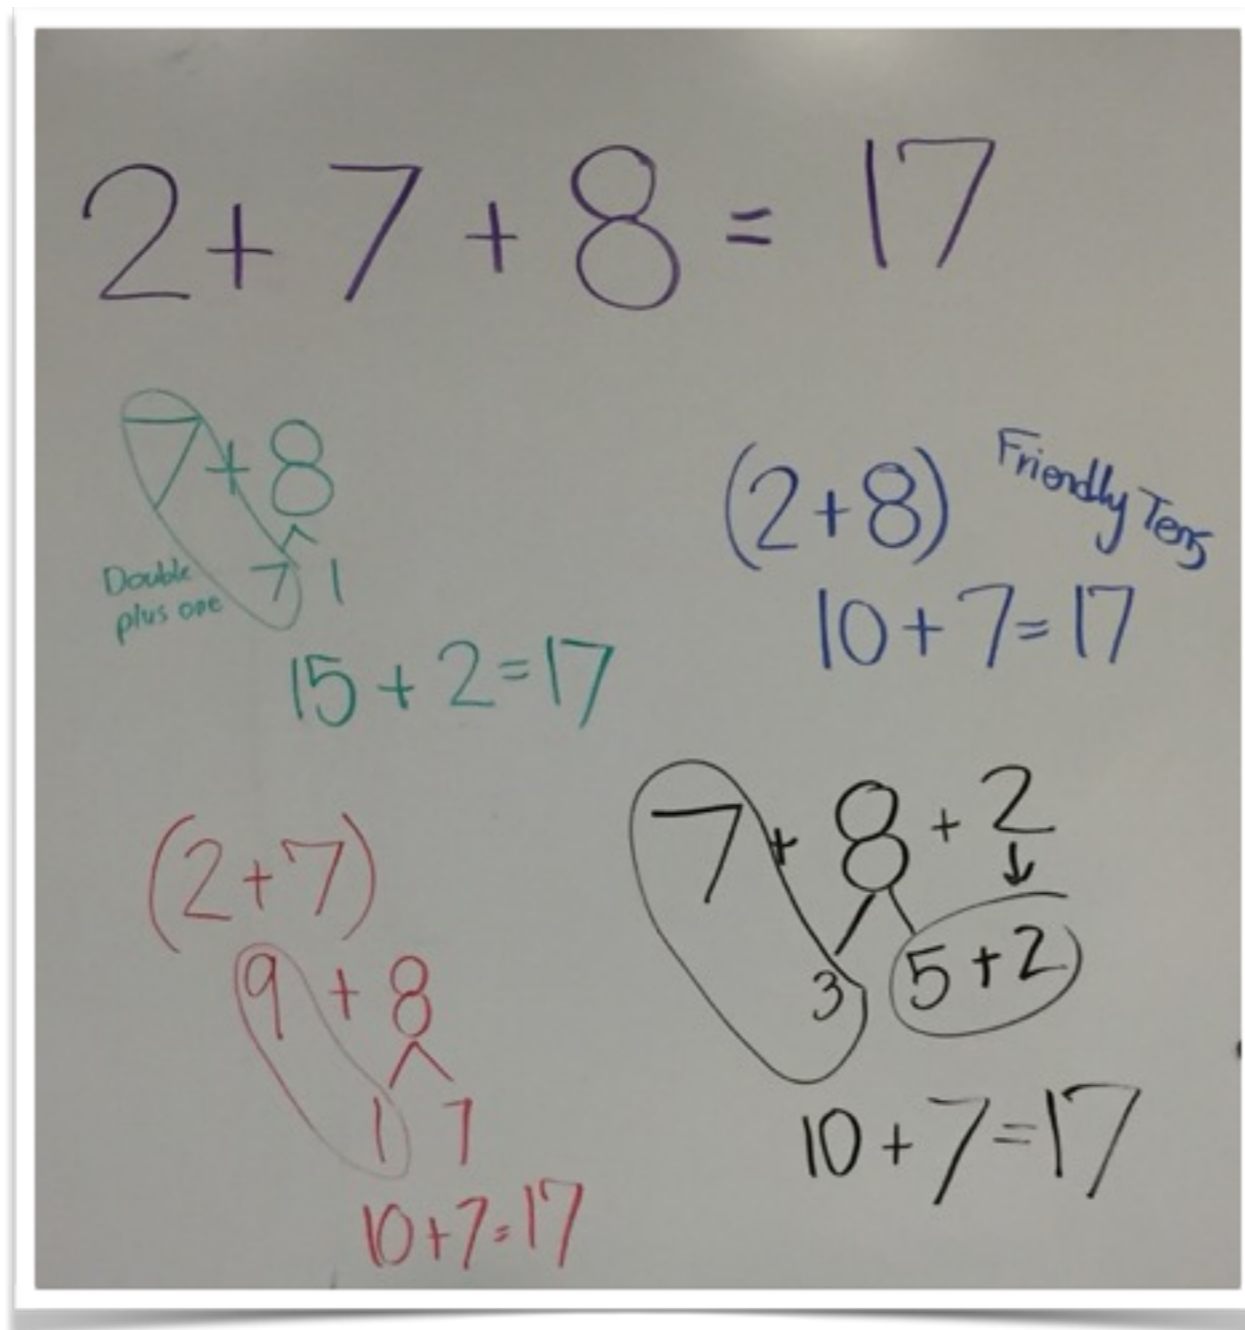 2 + 7 + 8 = 17
7 + 8
7 1
Double
plus one
15 + 2 = 17
(2+8)
Friendly Tens
10 + 7 = 17
(2+7)
9 + 8
1 7
10+7=17
7 + 8 + 2
3 5 + 2
10 + 7 = 17